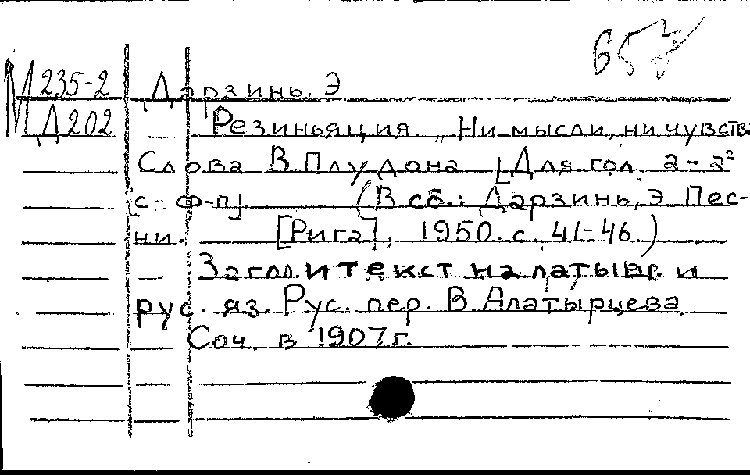 657
М 235-2 Дарзинь, Э
Д202 Резиньяция. „Ни мысли, ни чувства
Слова В. Плудона [Для гол. a-a²
с ф-п] (В сб.: Дарзинь, Э Пес-
ни. [Рига], 1950. с. 41-46.)
Загол. и текст на латыш. и
рус. яз. Рус. пер. В. Алатырцева
Соч. в 1907 г.